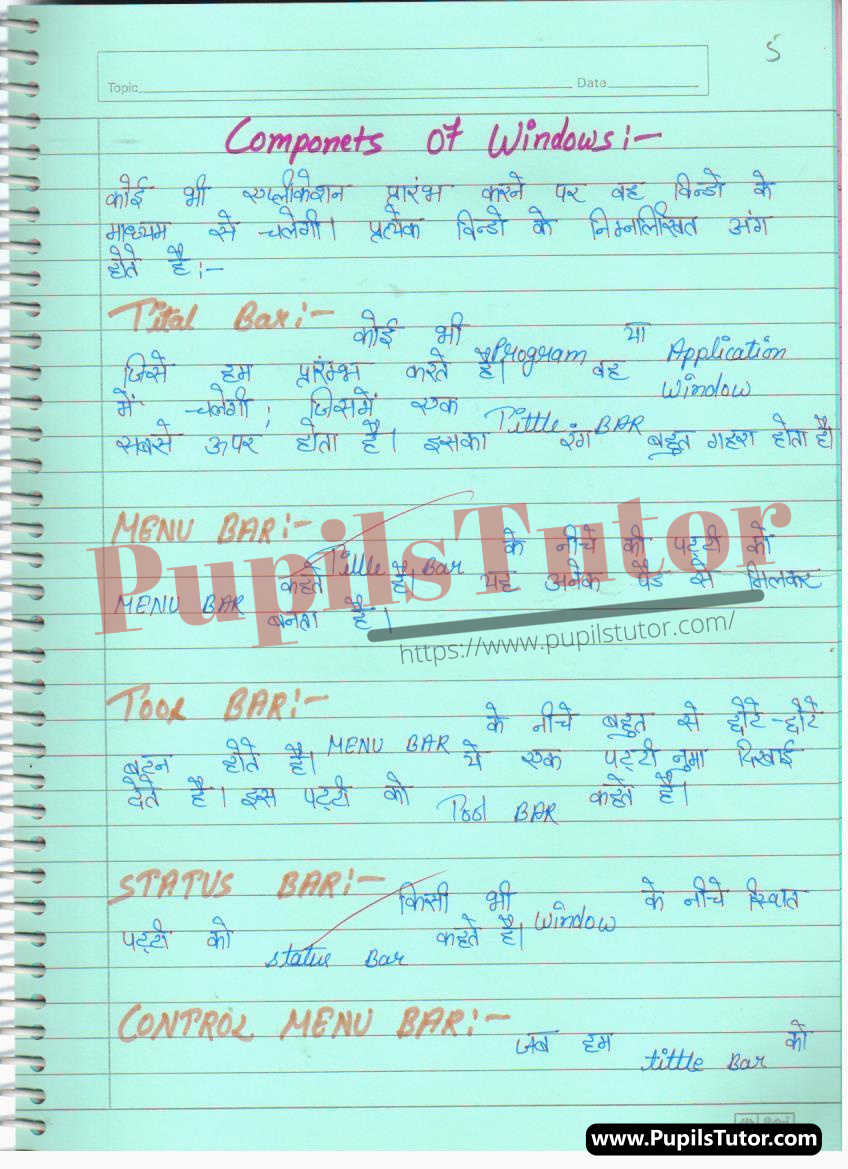 5
Topic Date
Componets Of Windows:-
कोई भी एप्लीकेशन प्रारंभ करने पर वह विन्डो के
माध्यम से चलेगी। प्रत्येक विन्डो के निम्नलिखित अंग
होते है:-
Tital Bar:-
कोई भी Program या Application
जिसे हम प्रारंम्भ करते है। वह Window
में चलेगी; जिसमें एक Tittle BAR
सबसे ऊपर होता है। इसका रंग बहुत गहरा होता है।
MENU BAR:-
Tittle Bar के नीचे की पट्टी को
MENU BAR कहते है। यह अनेक पैड से मिलकर
बनता है।
PupilsTutor
https://www.pupilstutor.com/
TOOL BAR:-
MENU BAR के नीचे बहुत से छोटे-छोटे
बटन होते है। ये एक पट्टी नुमा दिखाई
देते है। इस पट्टी को Tool BAR कहते है।
STATUS BAR:-
किसी भी Window के नीचे स्थित
पट्टी को status Bar कहते है।
CONTROL MENU BAR:-
जब हम tittle Bar को
www.PupilsTutor.com